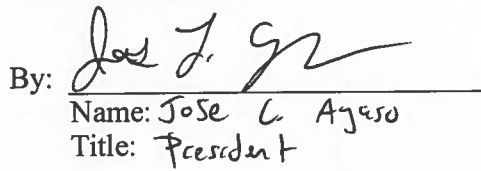 By:
Name: Jose C. Ayaso
Title: President